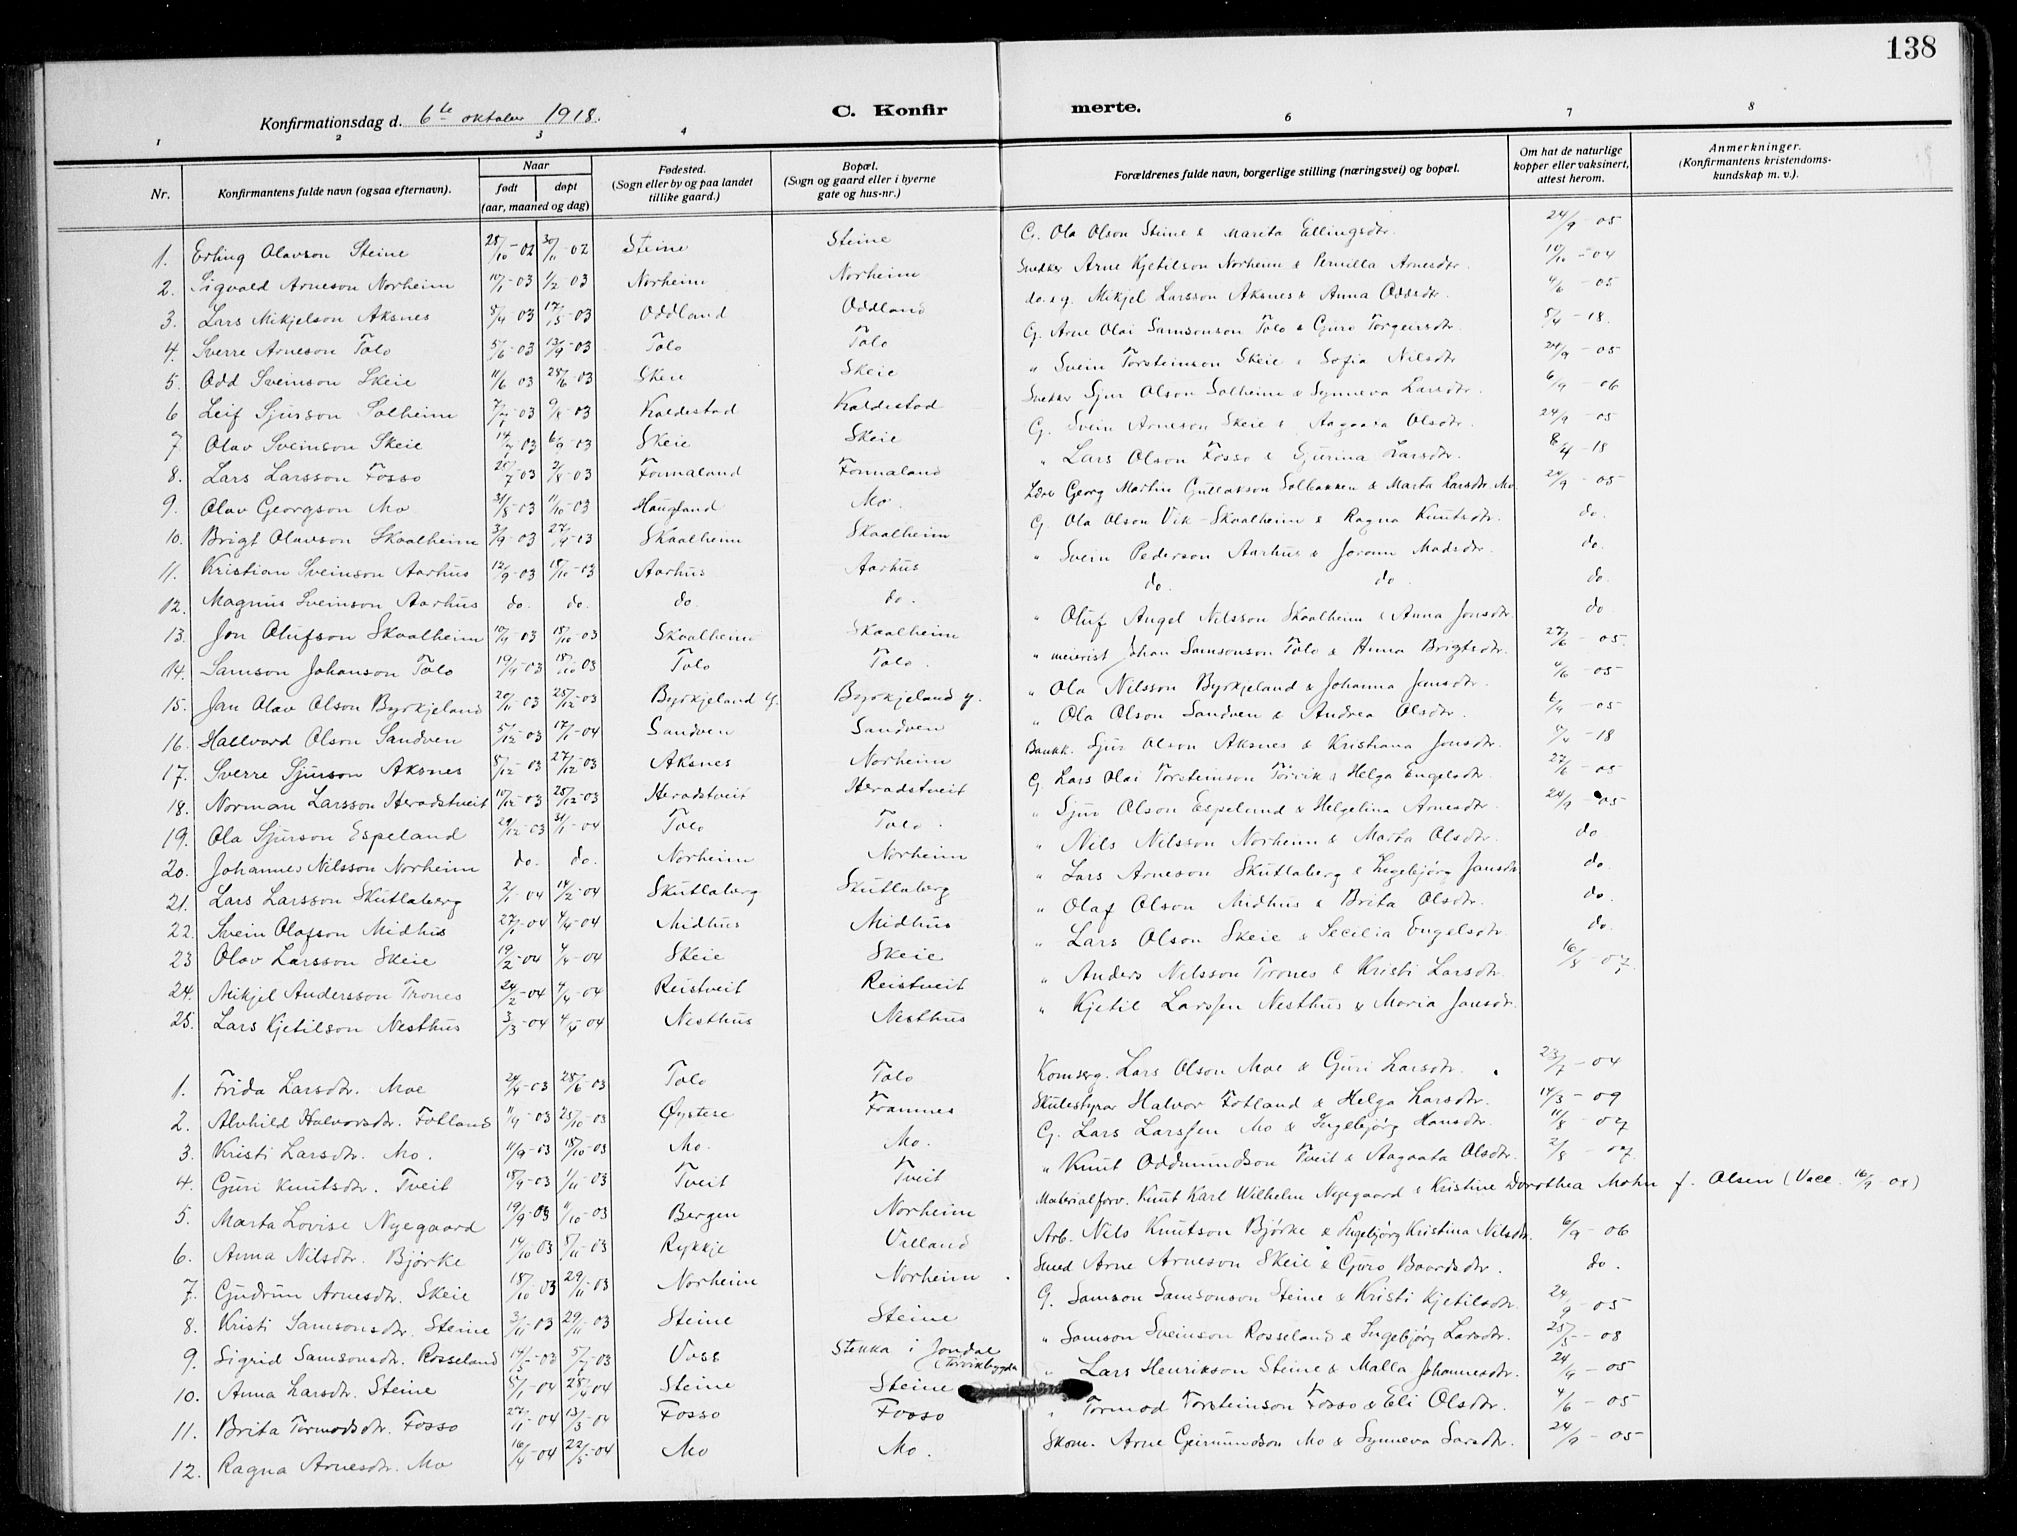 138
Konfirmationsdag d. 6te oktober 1918.
C. Konfir merte.
1 2 3 4 6 7 8
Nr. Konfirmantens fulde navn (ogsaa efternavn). Naar født døpt (aar, maaned og dag) Fødested. (Sogn eller by og paa landet tillike gaard.) Bopæl. (Sogn og gaard eller i byerne gate og hus-nr.) Forældrenes fulde navn, borgerlige stilling (næringsvei) og bopæl. Om hat de naturlige kopper eller vaksinert, attest herom. Anmerkninger. (Konfirmantens kristendoms-kundskap m. v.).
1. Erling Olavson Steine 28/10-02 30/11-02 Steine Steine G. Ola Olson Steine & Marita Ellingsdtr. 24/9-05
2. Sigvald Arneson Norheim 10/1-03 1/2 03 Norheim Norheim Snekker Arne Kjetilson Norheim & Pernilla Arnesdtr. 10/10-04
3. Lars Mikjelson Aksnes 8/4-03 17/5-03 Oddland Oddland do. & g. Mikjel Larsson Aksnes & Anna Oddsdtr. 4/6-05
4. Sverre Arneson Tolo 5/6-03 13/9-03 Tolo Tolo G. Arne Olai Samsonson Tolo & Guro Torgeirsdtr. 8/4-18.
5. Odd Sveinson Skeie 11/6 03 28/6 03 Skeie Skeie " Svein Torsteinson Skeie & Sofia Nilsdtr 24/9-05
6 Leif Sjurson Solheim 7/7-03 9/8-03 Kaldestad Kaldestad Snekker Sjur Olson Solheim & Synneva Larsdtr. 6/9-06
7. Olav Sveinson Skeie 14/7 03 6/9-03 Skeie Skeie G. Svein Arneson Skeie & Aagaata Olsdtr. 24/9-05
8. Lars Larsson Fosso 28/7 03 2/8-03 Fonnaland Fonnaland " Lars Olson Fosso & Gjurina Larsdtr. 8/4-18
9. Olav Georgson Mo 31/8-03 11/10-03 Haugland Mo. Lærer Georg Martin Gullakson Solbakken & Marta Larsdtr. Mo. 24/9-05
10. Brigt Olavson Skaalheim 3/9-03 27/9-03 Skaalheim Skaalheim G. Ola Olson Vik-Skaalheim & Ragna Knutsdtr. do.
11. Kristian Sveinson Aarhus 12/9-03 18/10-03 Aarhus Aarhus " Svein Pederson Aarhus & Jorann Madsdtr. do.
12. Magnus Sveinson Aarhus do. do. do. do. do. do. do
13. Jon Olufson Skaalheim 10/9-03 18/10-03 Skaalheim Skaalheim " Oluf Angel Nilsson Skaalheim & Anna Jonsdtr. do
14. Samson Johanson Tolo 19/9-03 18/10 03 Tolo Tolo. " meierist Johan Samsonson Tolo & Anna Brigtsdtr. 27/6-05.
15. Jan Olav Olson Byrkjeland 20/11-03 25/12-03 Byrkjeland y. Byrkjeland y. " Ola Nilsson Byrkjeland & Johanna Jansdtr. 4/6-05
16. Hallvard Olson Sandven 5/12-03 17/1-04 Sandven Sandven " Ola Olson Sandven & Andrea Olsdtr. 6/9-05
17. Sverre Sjurson Aksnes 8/12-03 27/12-03 Aksnes Norheim Bankk. Sjur Olson Aksnes & Kristiana Jonsdtr. 8/4-18
18. Norman Larsson Heradstveit 10/12-03 25/12-03 Heradstveit Heradstveit G. Lars Olai Torsteinson Torvik & Helga Engelsdtr. 27/6-05
19. Ola Sjurson Espeland 29/12-03 31/1-04 Tolo Tolo. " Sjur Olson Espeland & Helgelina Arnesdtr. 24/9-05
20. Johannes Nilsson Norheim do. do. Norheim Norheim " Nils Nilsson Norheim & Marta Olsdtr. do
21. Lars Larsson Skutlaberg 2/1-04 14/2-04 Skutlaberg Skutlaberg " Lars Arneson Skutlaberg & Ingebjørg Jansdtr. do.
22. Svein Olafson Midhus 27/1-04 4/4-04 Midhus Midhus " Olaf Olson Midhus & Brita Olsdtr. do.
23 Olav Larsson Skeie 19/2-04 4/4-04 Skeie Skeie " Lars Olson Skeie & Secilia Engelsdtr. do.
24. Mikjel Andersson Trones 24/2-04 4/4-04 Reistveit Reistveit " Anders Nilsson Trones & Kristi Larsdtr. 16/8-07.
25. Lars Kjetilson Nesthus 3/3-04 4/4-04 Nesthus Nesthus " Kjetil Larssen Nesthus & Maria Jansdtr.
1. Frida Larsdtr. Moe 24/4-03 28/6-03 Tolo Tolo Komserg. Lars Olson Moe & Guri Larsdtr. 23/7-04
2. Alvhild Halvorsdtr. Fotland 11/9-03 25/10-03 Øystese Framnes Skulestyrar Halvor Fotland & Helga Larsdtr. 14/3-09
3. Kristi Larsdtr. Mo. 11/9-03 18/10-03 Mo. Mo. G. Lars Larssen Mo & Ingebjørg Hansdtr. 11/8-07
4. Guri Knutsdtr. Tveit 18/9-03 1/11-03 Tveit Tveit " Knut Oddmundson Tveit & Aagaata Olsdtr. 2/8-07.
5. Marta Lovise Nyegaard 19/9-03 11/10-03 Bergen Norheim Materialforv. Knut Karl Wilhelm Nyegaard & Kristine Dorothea Mohn f. Olsen (Vacc. 16/9-08)
6. Anna Nilsdtr. Bjørke 14/10 03 8/11-03 Rykkje Velland Arb. Nils Knutson Bjørke & Ingebjørg Kristina Nilsdtr. 6/9-06
7. Gudrun Arnesdtr. Skeie 18/10 03 29/11-03 Norheim Norheim. Smed Arne Arneson Skeie & Guro Baardsdtr. do.
8. Kristi Samsonsdtr. Steine 3/11-03 29/11-03 Steine Steine G. Samson Samsonson Steine & Kristi Kjetilsdtr. 24/9-05
9. Sigrid Samsonsdtr. Rosseland 14/5-03 5/7-03 Voss Stekka i Jondal (Torvikbygda " Samson Sveinson Rosseland & Ingebjørg Larsdtr. 25/5-08
10. Anna Larsdtr. Steine 5/1-04 28/4 04 Steine Steine " Lars Henrikson Steine & Malla Johannesdtr. 24/9-05
11. Brita Tormodsdtr. Fosso 27/11-04 13/3-04 Fosso Fosso " Tormod Torsteinson Fosso & Eli Olsdtr. 4/6-05
12. Ragna Arnesdtr. Mo 16/4-04 22/5-04 Mo Mo. Skom. Arne Geirmundson Mo & Synneva Larsdtr. 24/9-05